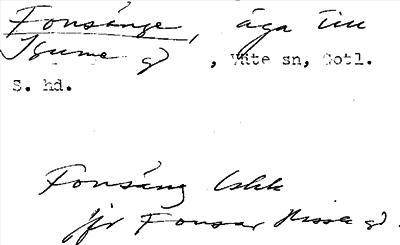 Fonsänge, äga till
Isume gd, Väte sn, Gotl.
S. hd.
Fonsäng
jfr Fonsar gd.